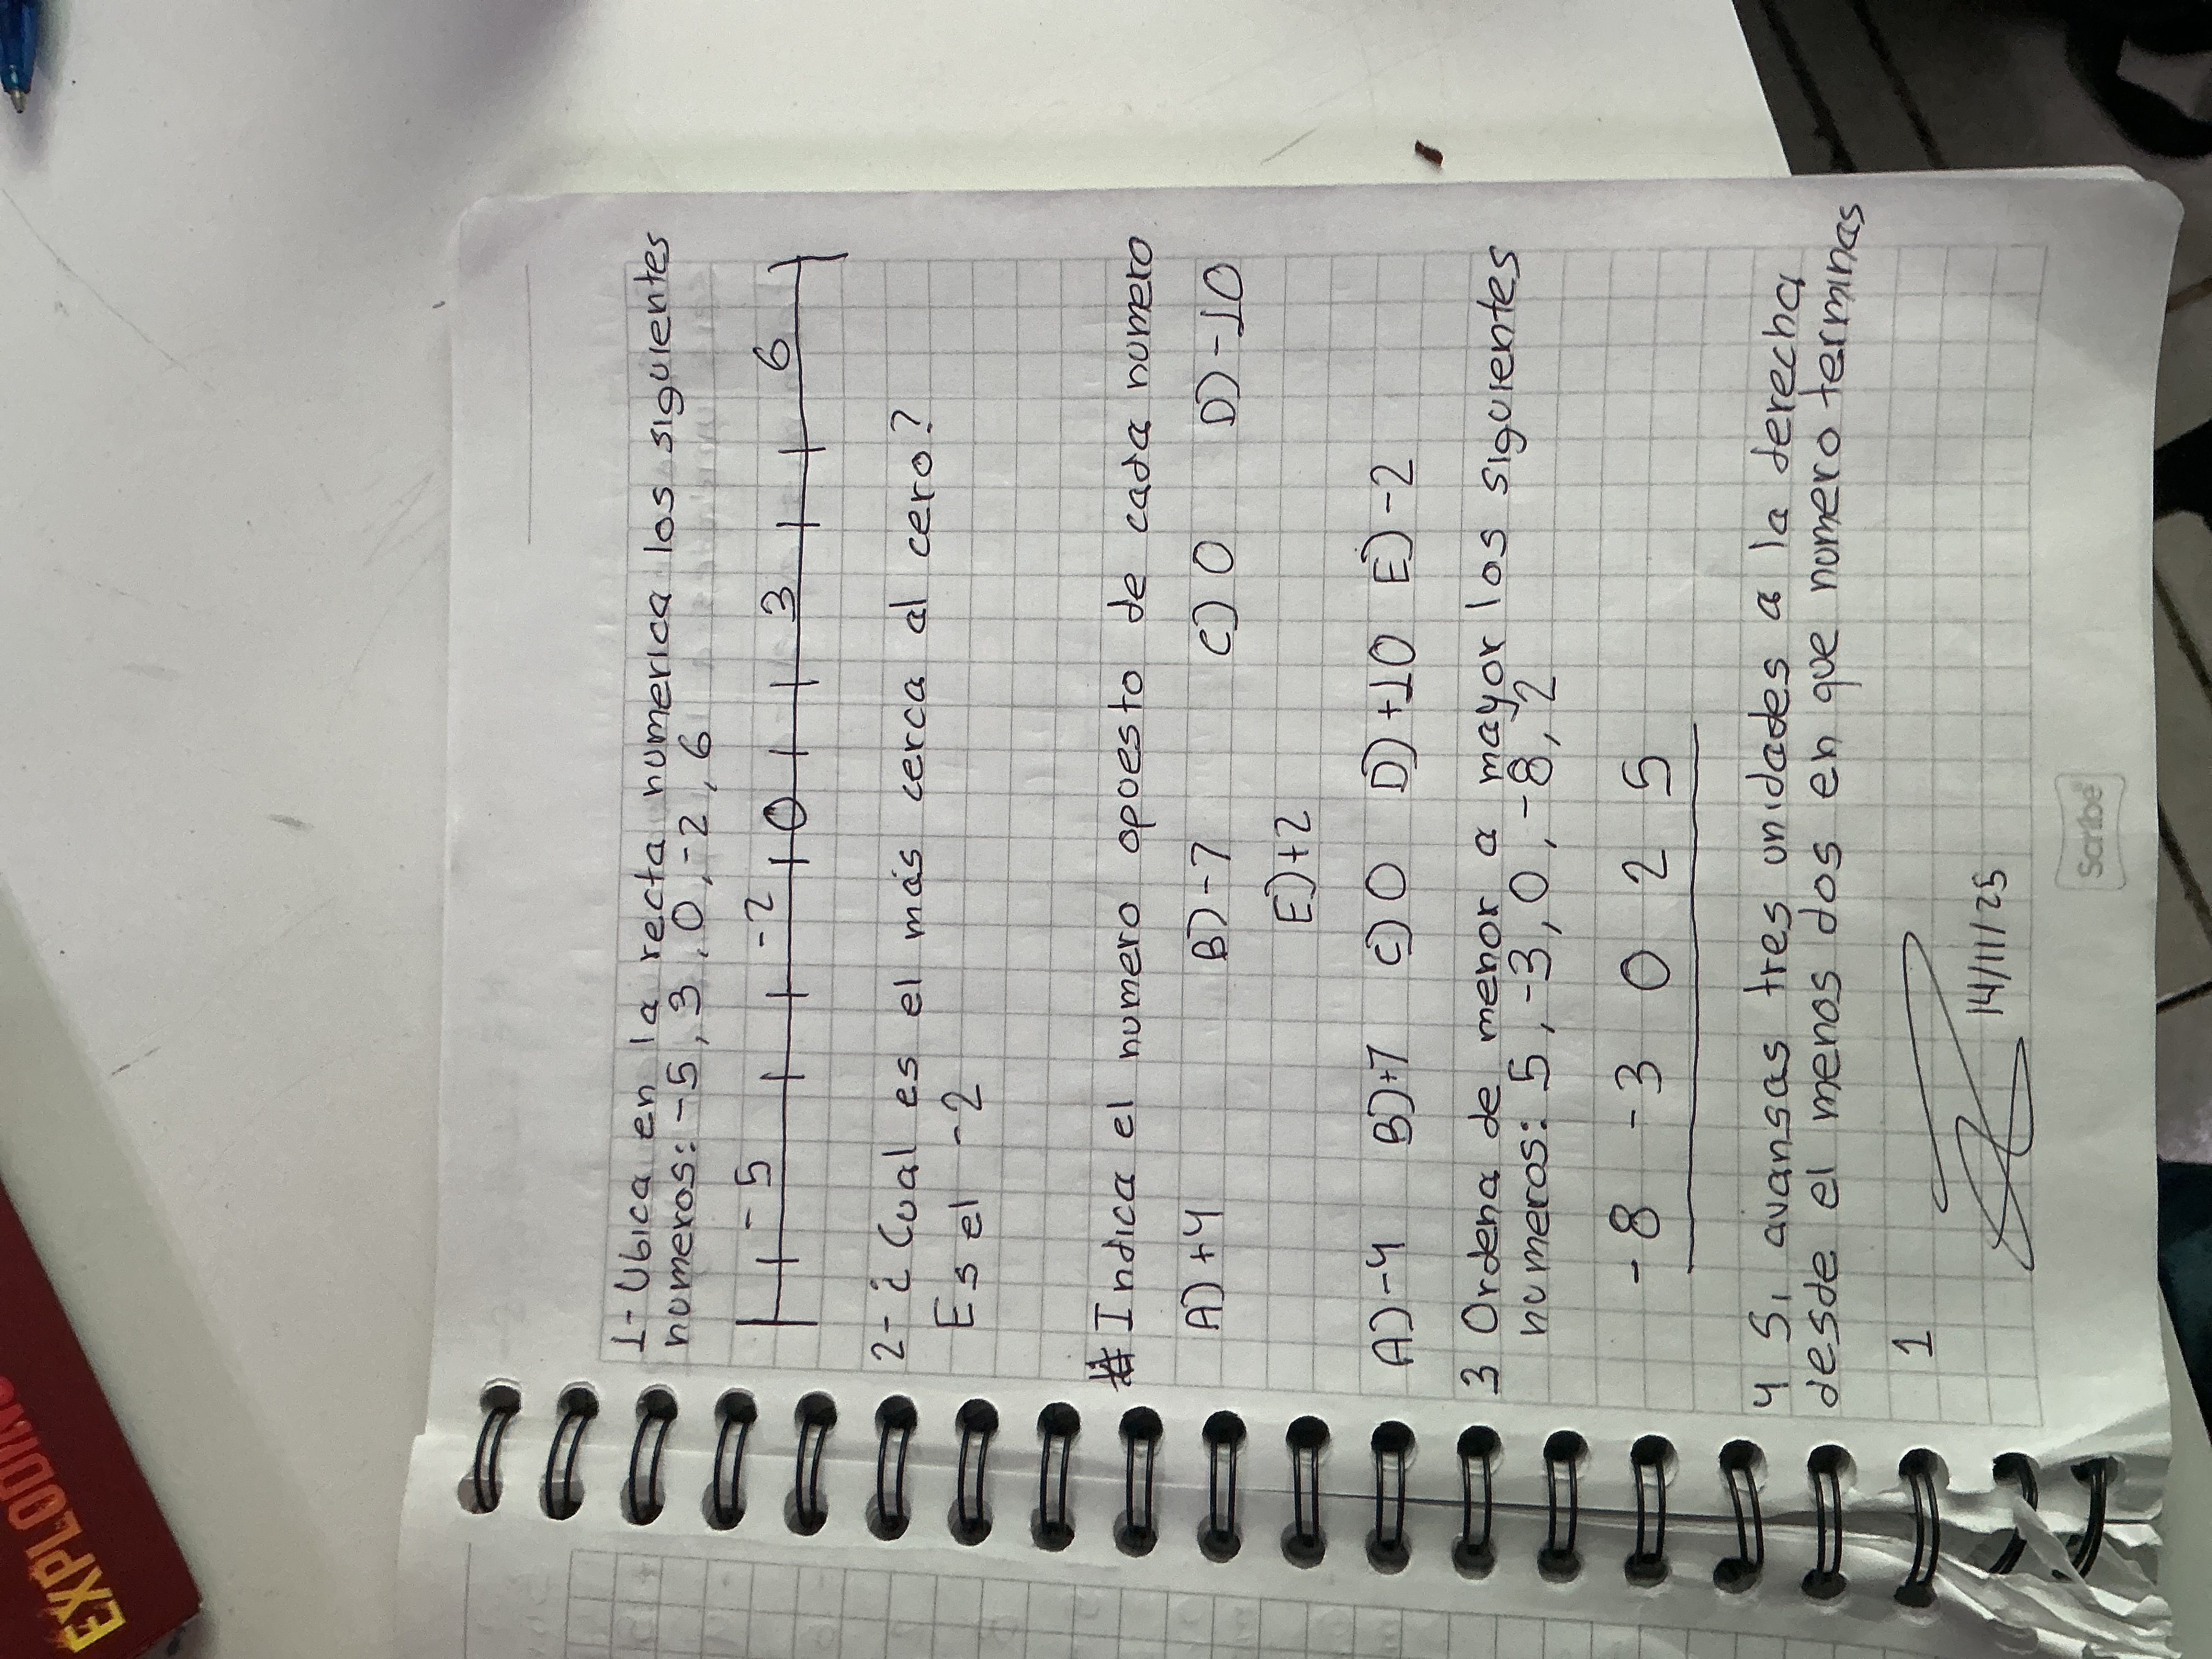 1- Ubica en la recta numerica los siguientes
numeros: -5, 3, 0, -2, 6
-5 -2 0 3 6
2- ¿ Cual es el más cerca al cero?
Es el -2
# Indica el numero opuesto de cada numero
A) +4 B) -7 C) 0 D) -10
E) +2
A) -4 B) +7 C) 0 D) +10 E) -2
3 Ordena de menor a mayor los siguientes
numeros: 5, -3, 0, -8, 2
-8 -3 0 2 5
4 Si avansas tres unidades a la derecha
desde el menos dos en que numero terminas
1
14/11/25
Scribe
EXPLODING